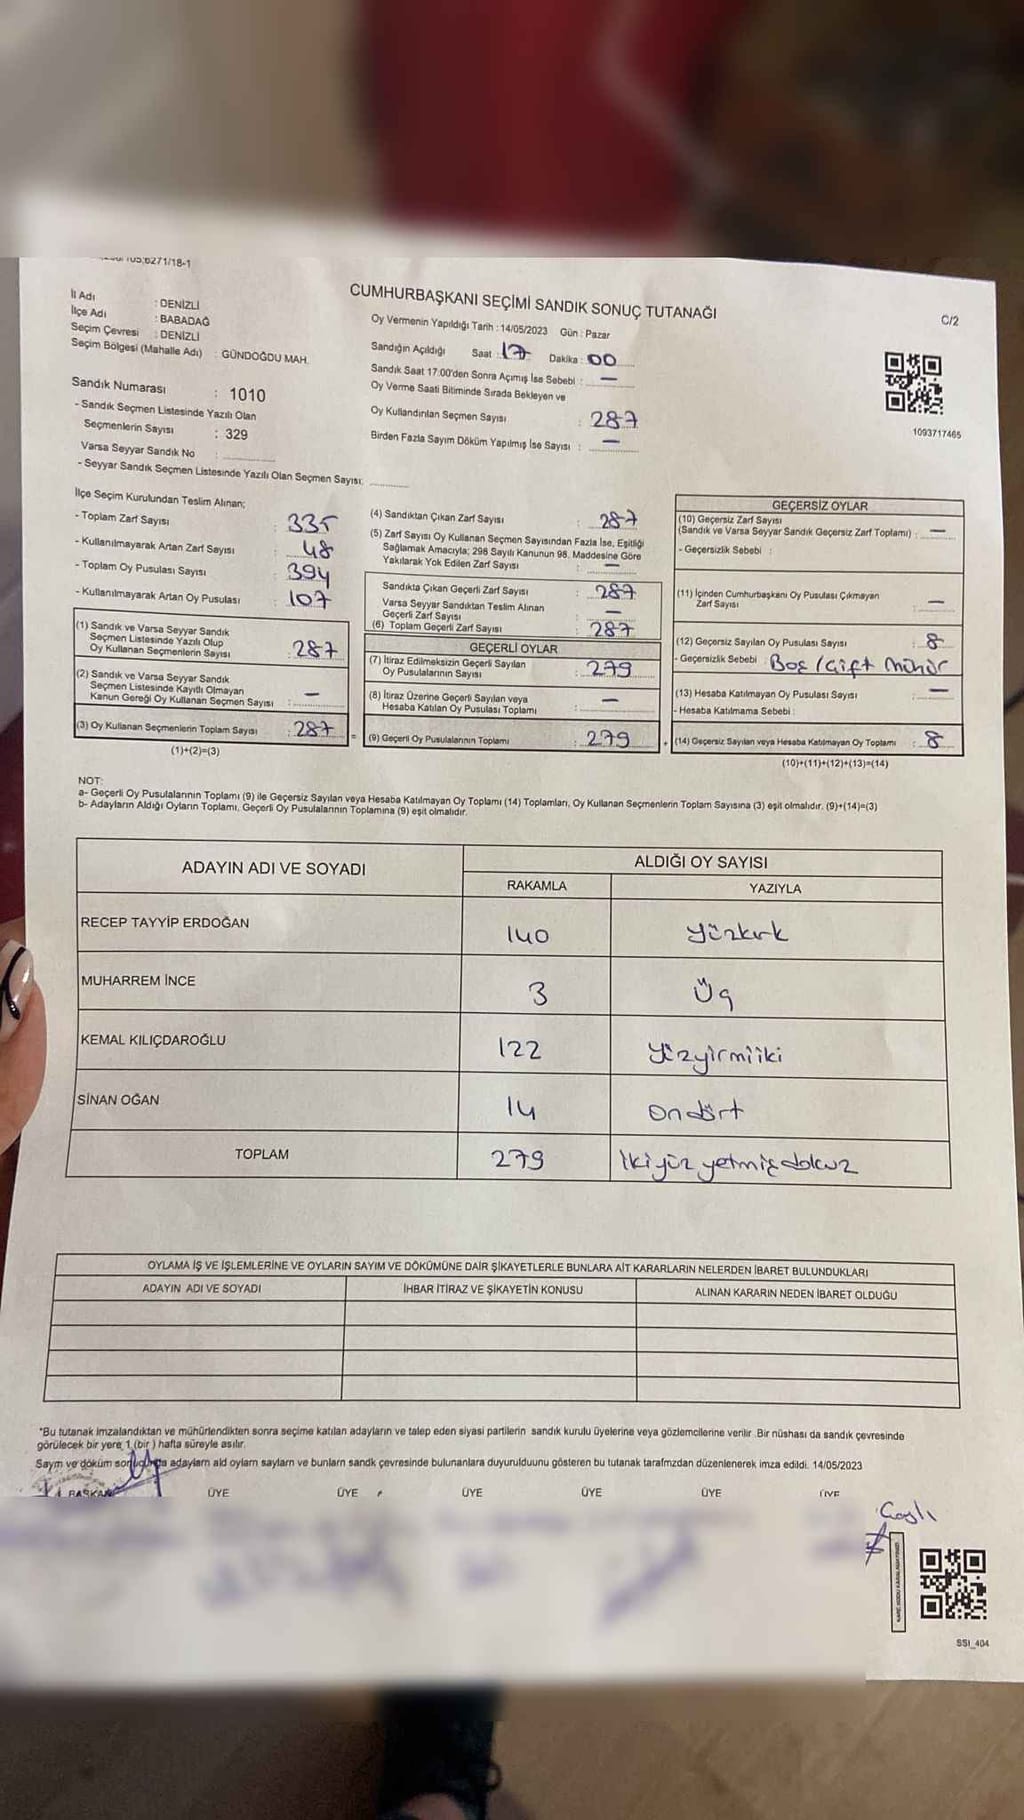 CUMHURBAŞKANI SEÇİMİ SANDIK SONUÇ TUTANAĞI
C/2
İl Adı : DENİZLİ
İlçe Adı : BABADAĞ
Seçim Çevresi : DENİZLİ
Seçim Bölgesi (Mahalle Adı) : GÜNDOĞDU MAH.
Sandık Numarası : 1010
- Sandık Seçmen Listesinde Yazılı Olan
Seçmenlerin Sayısı : 329
Varsa Seyyar Sandık No :
- Seyyar Sandık Seçmen Listesinde Yazılı Olan Seçmen Sayısı:
Oy Vermenin Yapıldığı Tarih : 14/05/2023 Gün : Pazar
Sandığın Açıldığı Saat : 17 Dakika : 00
Sandık Saat 17:00'den Sonra Açımış İse Sebebi : —
Oy Verme Saati Bitiminde Sırada Bekleyen ve
Oy Kullandırılan Seçmen Sayısı : 287
Birden Fazla Sayım Döküm Yapılmış İse Sayısı : —
1093717465
İlçe Seçim Kurulundan Teslim Alınan;
- Toplam Zarf Sayısı : 335
- Kullanılmayarak Artan Zarf Sayısı : 48
- Toplam Oy Pusulası Sayısı : 394
- Kullanılmayarak Artan Oy Pusulası : 107
(1) Sandık ve Varsa Seyyar Sandık
Seçmen Listesinde Yazılı Olup
Oy Kullanan Seçmenlerin Sayısı : 287
(2) Sandık ve Varsa Seyyar Sandık
Seçmen Listesinde Kayıtlı Olmayan
Kanun Gereği Oy Kullanan Seçmen Sayısı : —
(3) Oy Kullanan Seçmenlerin Toplam Sayısı : 287
(1)+(2)=(3)
(4) Sandıktan Çıkan Zarf Sayısı : 287
(5) Zarf Sayısı Oy Kullanan Seçmen Sayısından Fazla İse, Eşitliği
Sağlamak Amacıyla; 298 Sayılı Kanunun 98. Maddesine Göre
Yakılarak Yok Edilen Zarf Sayısı : —
Sandıkta Çıkan Geçerli Zarf Sayısı : 287
Varsa Seyyar Sandıktan Teslim Alınan
Geçerli Zarf Sayısı : —
(6) Toplam Geçerli Zarf Sayısı : 287
GEÇERLİ OYLAR
(7) İtiraz Edilmeksizin Geçerli Sayılan
Oy Pusulalarının Sayısı : 279
(8) İtiraz Üzerine Geçerli Sayılan veya
Hesaba Katılan Oy Pusulası Toplamı : —
= (9) Geçerli Oy Pusulalarının Toplamı : 279
GEÇERSİZ OYLAR
(10) Geçersiz Zarf Sayısı
(Sandık ve Varsa Seyyar Sandık Geçersiz Zarf Toplamı) : —
- Geçersizlik Sebebi :
(11) İçinden Cumhurbaşkanı Oy Pusulası Çıkmayan
Zarf Sayısı : —
(12) Geçersiz Sayılan Oy Pusulası Sayısı : 8
- Geçersizlik Sebebi : Boş / Çift Mühür
(13) Hesaba Katılmayan Oy Pusulası Sayısı : —
- Hesaba Katılmama Sebebi :
+ (14) Geçersiz Sayılan veya Hesaba Katılmayan Oy Toplamı : 8
(10)+(11)+(12)+(13)=(14)
NOT:
a- Geçerli Oy Pusulalarının Toplamı (9) ile Geçersiz Sayılan veya Hesaba Katılmayan Oy Toplamı (14) Toplamları, Oy Kullanan Seçmenlerin Toplam Sayısına (3) eşit olmalıdır. (9)+(14)=(3)
b- Adayların Aldığı Oyların Toplamı, Geçerli Oy Pusulalarının Toplamına (9) eşit olmalıdır.
ADAYIN ADI VE SOYADI ALDIĞI OY SAYISI
RAKAMLA YAZIYLA
RECEP TAYYİP ERDOĞAN 140 Yüzkırk
MUHARREM İNCE 3 Üç
KEMAL KILIÇDAROĞLU 122 Yüzyirmiiki
SİNAN OĞAN 14 Ondört
TOPLAM 279 İkiyüz yetmişdokuz
OYLAMA İŞ VE İŞLEMLERİNE VE OYLARIN SAYIM VE DÖKÜMÜNE DAİR ŞİKAYETLERLE BUNLARA AİT KARARLARIN NELERDEN İBARET BULUNDUKLARI
ADAYIN ADI VE SOYADI İHBAR İTİRAZ VE ŞİKAYETİN KONUSU ALINAN KARARIN NEDEN İBARET OLDUĞU
"Bu tutanak imzalandıktan ve mühürlendikten sonra seçime katılan adayların ve talep eden siyasi partilerin sandık kurulu üyelerine veya gözlemcilerine verilir .Bir nüshası da sandık çevresinde
görülecek bir yere 1 (bir ) hafta süreyle asılır.
Saym ve döküm adaylarn ald oylarn saylarn ve bunlarn sandk çevresinde bulunanlara duyurulduunu gösteren bu tutanak tarafmzdan düzenlenerek imza edildi. 14/05/2023
BAŞKAN ÜYE ÜYE ÜYE ÜYE ÜYE ÜYE
SSI_404